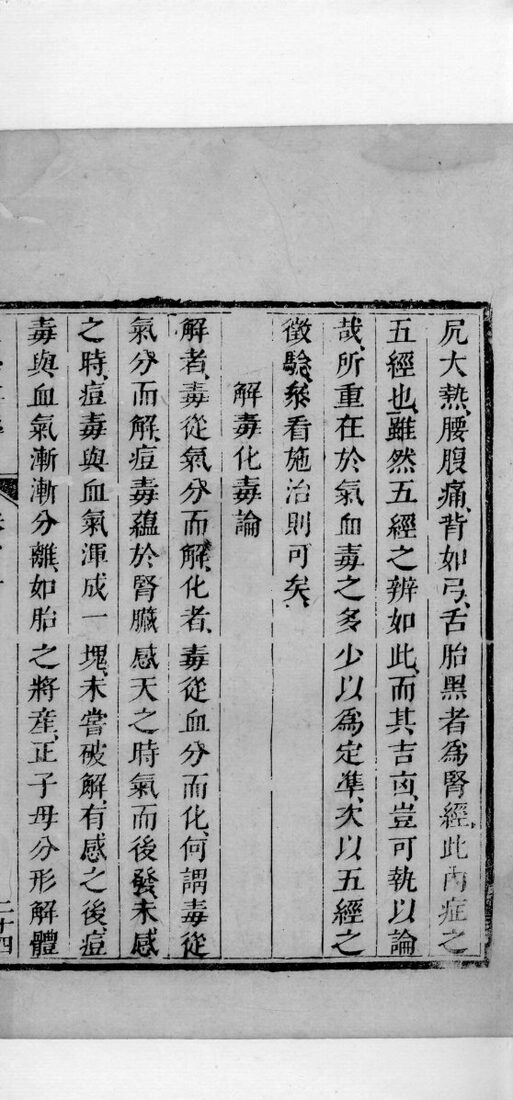 尻大熱、腰腹痛、背如弓、舌胎黑者爲腎經、此內症之
五經也、雖然五經之辨如此、而其吉凶、豈可執以論
哉、所重在於氣血毒之多少以爲定準、次以五經之
徵驗、叅看施治則可矣、
解毒化毒論
解者、毒從氣分而解、化者、毒從血分而化、何謂毒從
氣分而解、痘毒蘊於腎臟感天之時氣而後發未感
之時、痘毒與血氣渾成一塊、未嘗破解、有感之後、痘
毒與血氣漸漸分離、如胎之將產、正子母分形解體
二十四